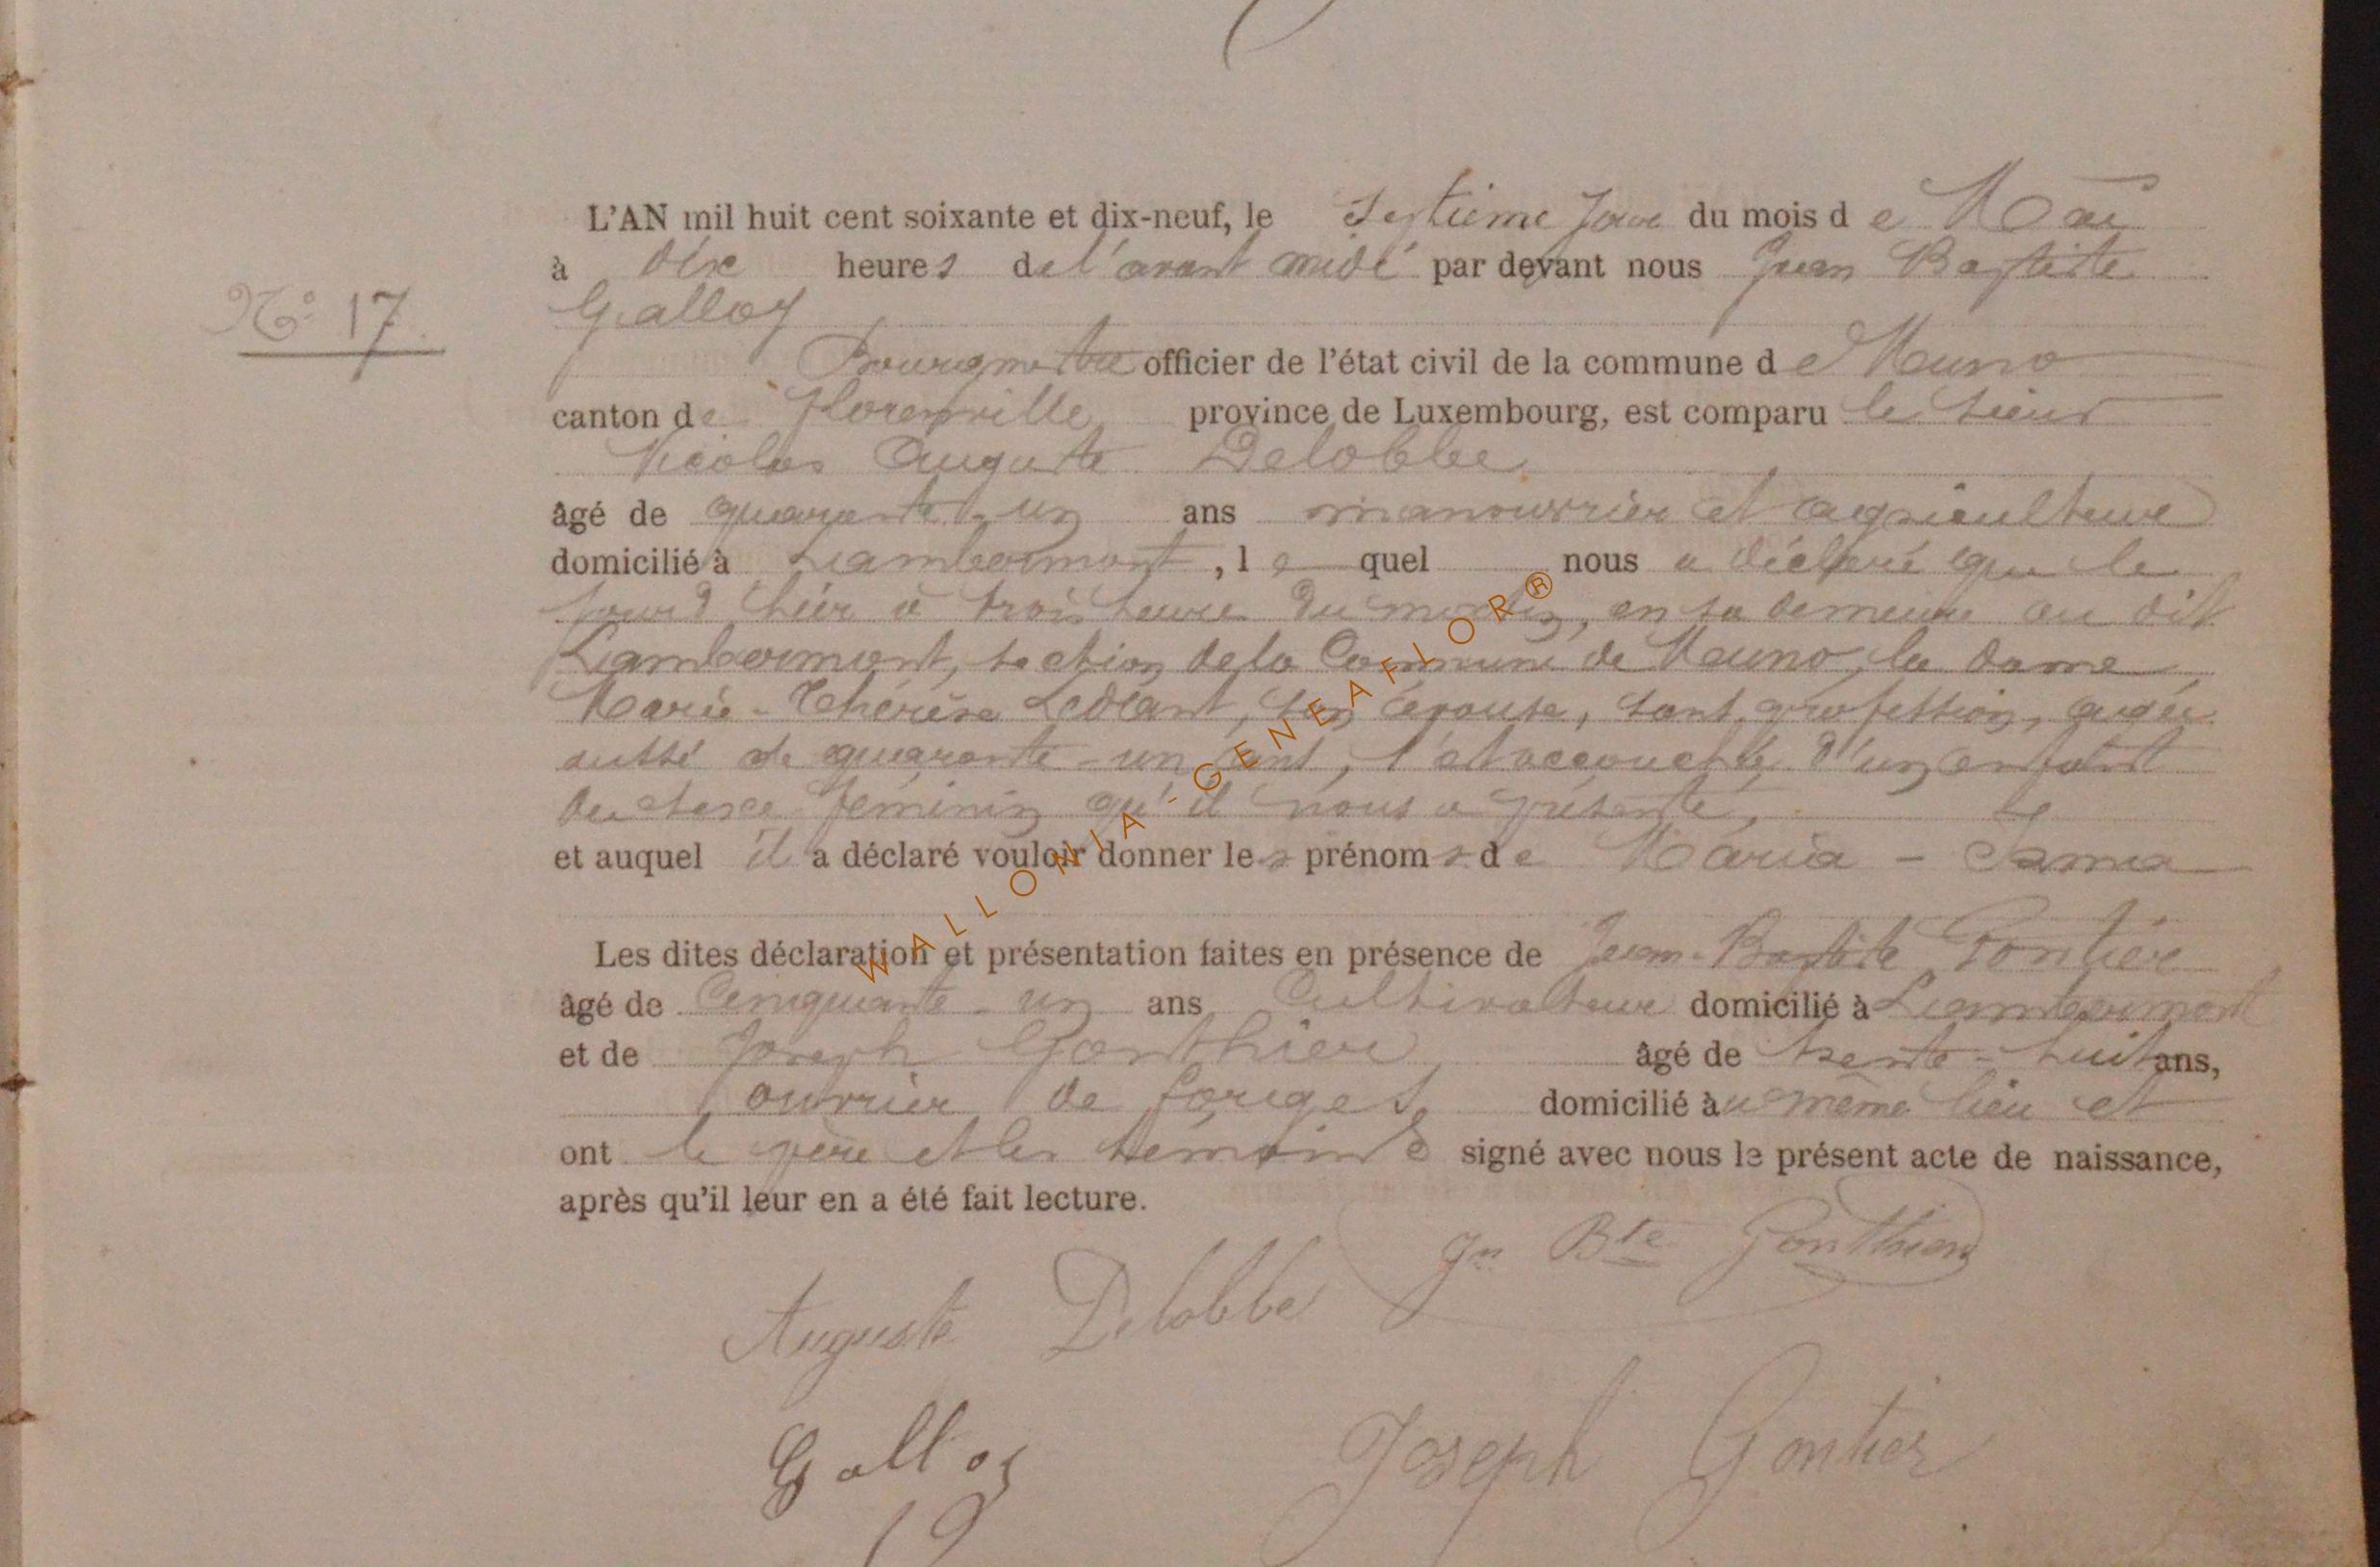 L'AN mil huit cent soixante et dix-neuf, le Septième Jour du mois de Mai
à dix heures de l'avant midi par devant nous Jean Baptiste
N° 17.
Galloy
Bourgmestre officier de l'état civil de la commune de Muno
canton de Florenville province de Luxembourg, est comparu le sieur
Nicolas Auguste Delobbe
âgé de quarante-un ans manouvrier et agriculteur
domicilié à Lambermont, lequel nous a déclaré que le
jour d'hier à trois heures du matin, en sa demeure au dit
Lambermont, section de la Commune de Muno, la dame
Marie-Thérèse Lediant, son épouse, sans profession, agée
aussi de quarante-un ans, est accouchée d'un enfant
du sexe féminin qu'il nous a présenté,
et auquel il a déclaré vouloir donner les prénoms de Maria -
Les dites déclaration et présentation faites en présence de Jean-Baptiste Gontier
âgé de Cinquante-un ans Cultivateur domicilié à Lambermont
et de Joseph Gonthier âgé de trente-huit ans,
ouvrier de forges domicilié au même lieu et
ont le père et les témoins signé avec nous le présent acte de naissance,
après qu'il leur en a été fait lecture.
Jn Bte Gonthier
Auguste Delobbe
Galloy
Joseph Gontier
WALLONIA - GENEAFLOR®